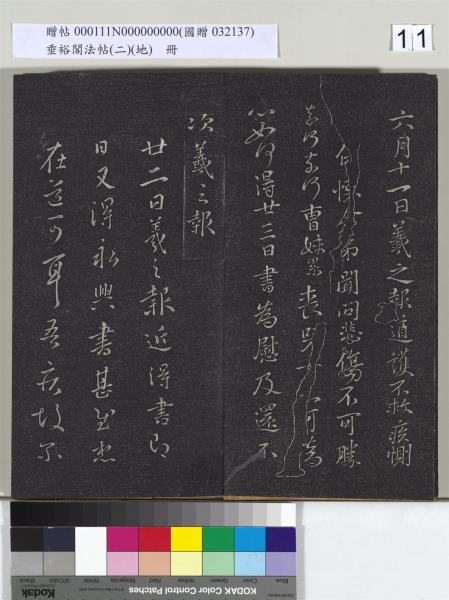 贈帖 000111N000000000(國贈 032137)
垂裕閣法帖(二)(地) 冊
11
六月十一日羲之報道護不救疾惻
但悼 弟聞問悲傷不可勝
奈何奈何曹妹累喪 何
心如何得廿三日書為慰及還不
次羲之報
廿二日羲之報近得書即
日又得永興書甚慰
在道可耳吾疾故爾
Blue
Cyan
Green
Yellow
Red
Magenta
White
3/Color
Black
Kodak
KODAK Color Control Patches